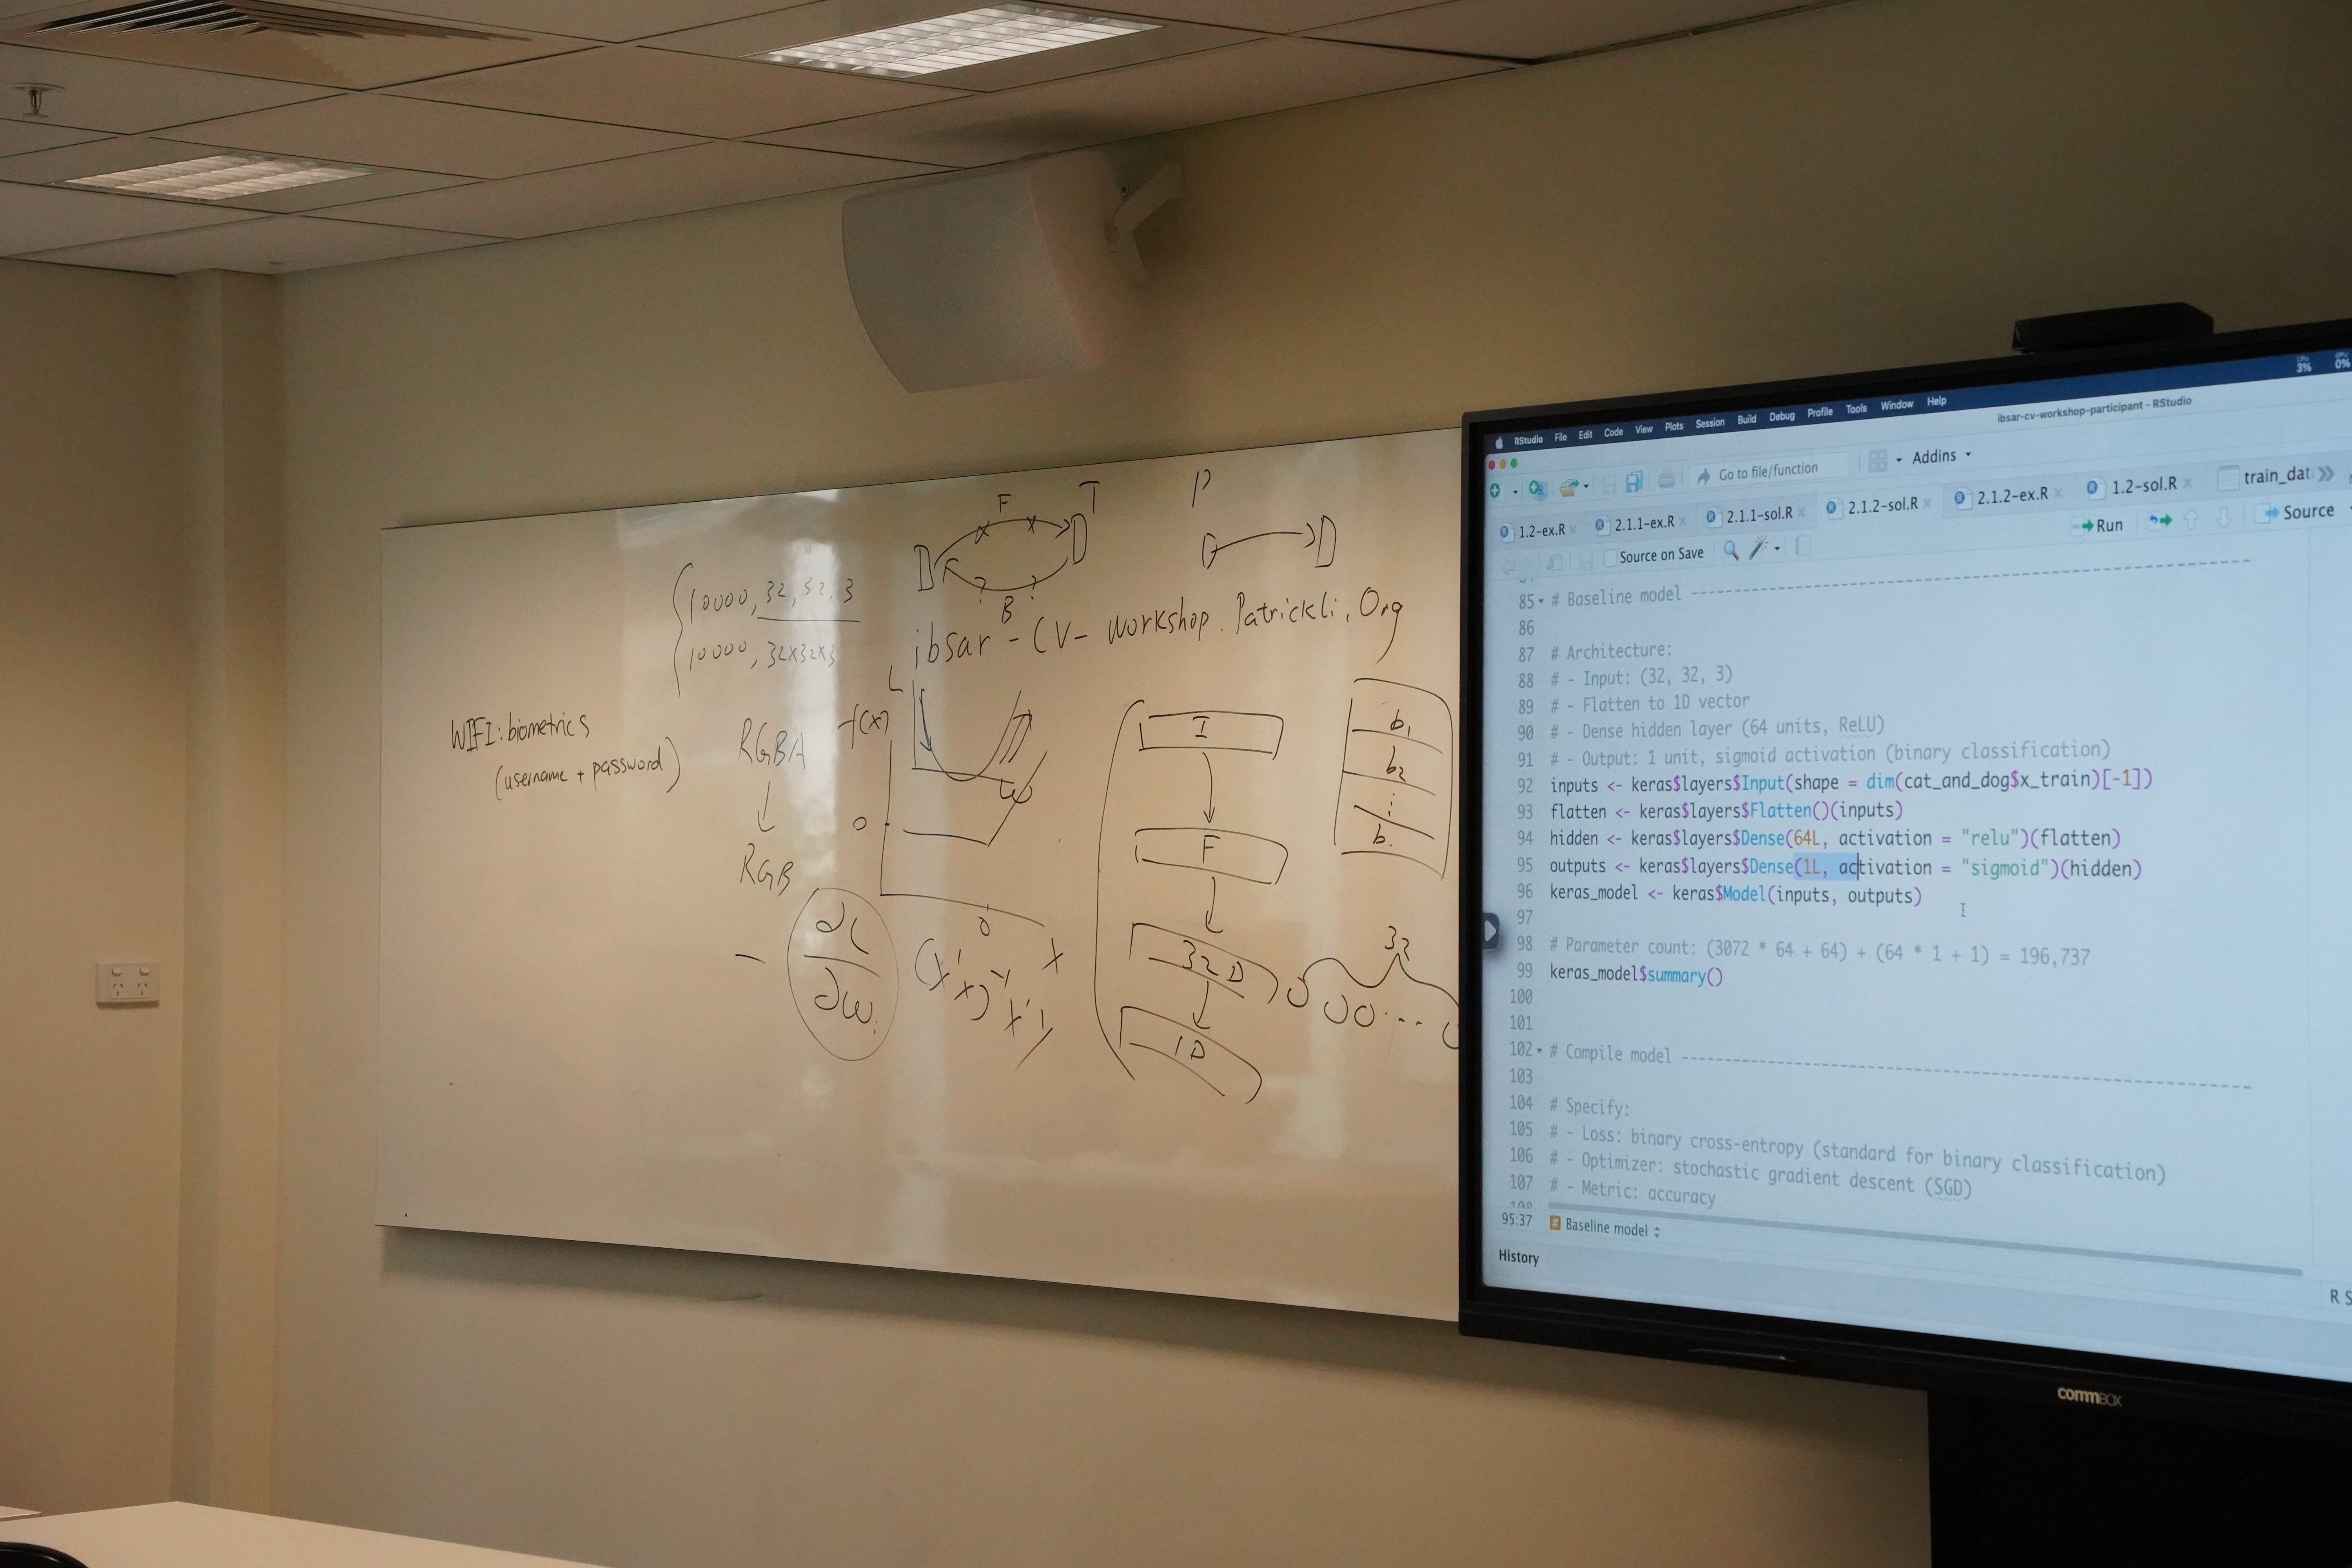 F
T
P
D
D
D
B
10000, 32, 32, 3
10000, 32x32x3
ibsar - CV - workshop. Patrickli. Org
WIFI: biometrics
(username + password)
RGBA
RGB
L
f(x)
ω
0
0
x
- ∂L
∂ω
(x'x)⁻¹ x'y
I
F
32 D
1D
b₁
b₂
⋮
b.
32
RStudio File Edit Code View Plots Session Build Debug Profile Tools Window Help
3% 0%
ibsar-cv-workshop-participant - RStudio
Go to file/function Addins
1.2-ex.R 2.1.1-ex.R 2.1.1-sol.R 2.1.2-sol.R 2.1.2-ex.R 1.2-sol.R train_dat
Source on Save Run Source
85 # Baseline model ----------------------------------------
86
87 # Architecture:
88 # - Input: (32, 32, 3)
89 # - Flatten to 1D vector
90 # - Dense hidden layer (64 units, ReLU)
91 # - Output: 1 unit, sigmoid activation (binary classification)
92 inputs <- keras$layers$Input(shape = dim(cat_and_dog$x_train)[-1])
93 flatten <- keras$layers$Flatten()(inputs)
94 hidden <- keras$layers$Dense(64L, activation = "relu")(flatten)
95 outputs <- keras$layers$Dense(1L, activation = "sigmoid")(hidden)
96 keras_model <- keras$Model(inputs, outputs)
97
98 # Parameter count: (3072 * 64 + 64) + (64 * 1 + 1) = 196,737
99 keras_model$summary()
100
101
102 # Compile model ----------------------------------------
103
104 # Specify:
105 # - Loss: binary cross-entropy (standard for binary classification)
106 # - Optimizer: stochastic gradient descent (SGD)
107 # - Metric: accuracy
108
95:37 # Baseline model
History
R S
commBOX